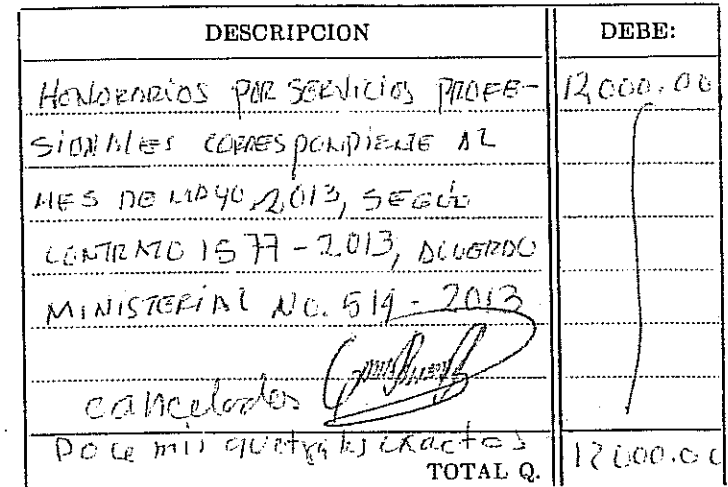 DESCRIPCION DEBE:
HONORARIOS POR SERVICIOS PROFE- 12,000.00
SIONALES CORRESPONDIENTE AL
MES DE MAYO 2013, SEGÚN
CONTRATO 1577-2013, ACUERDO
MINISTERIAL NO. 514-2013
cancelados
Doce mil quetzales exactos
TOTAL Q. 12000.00